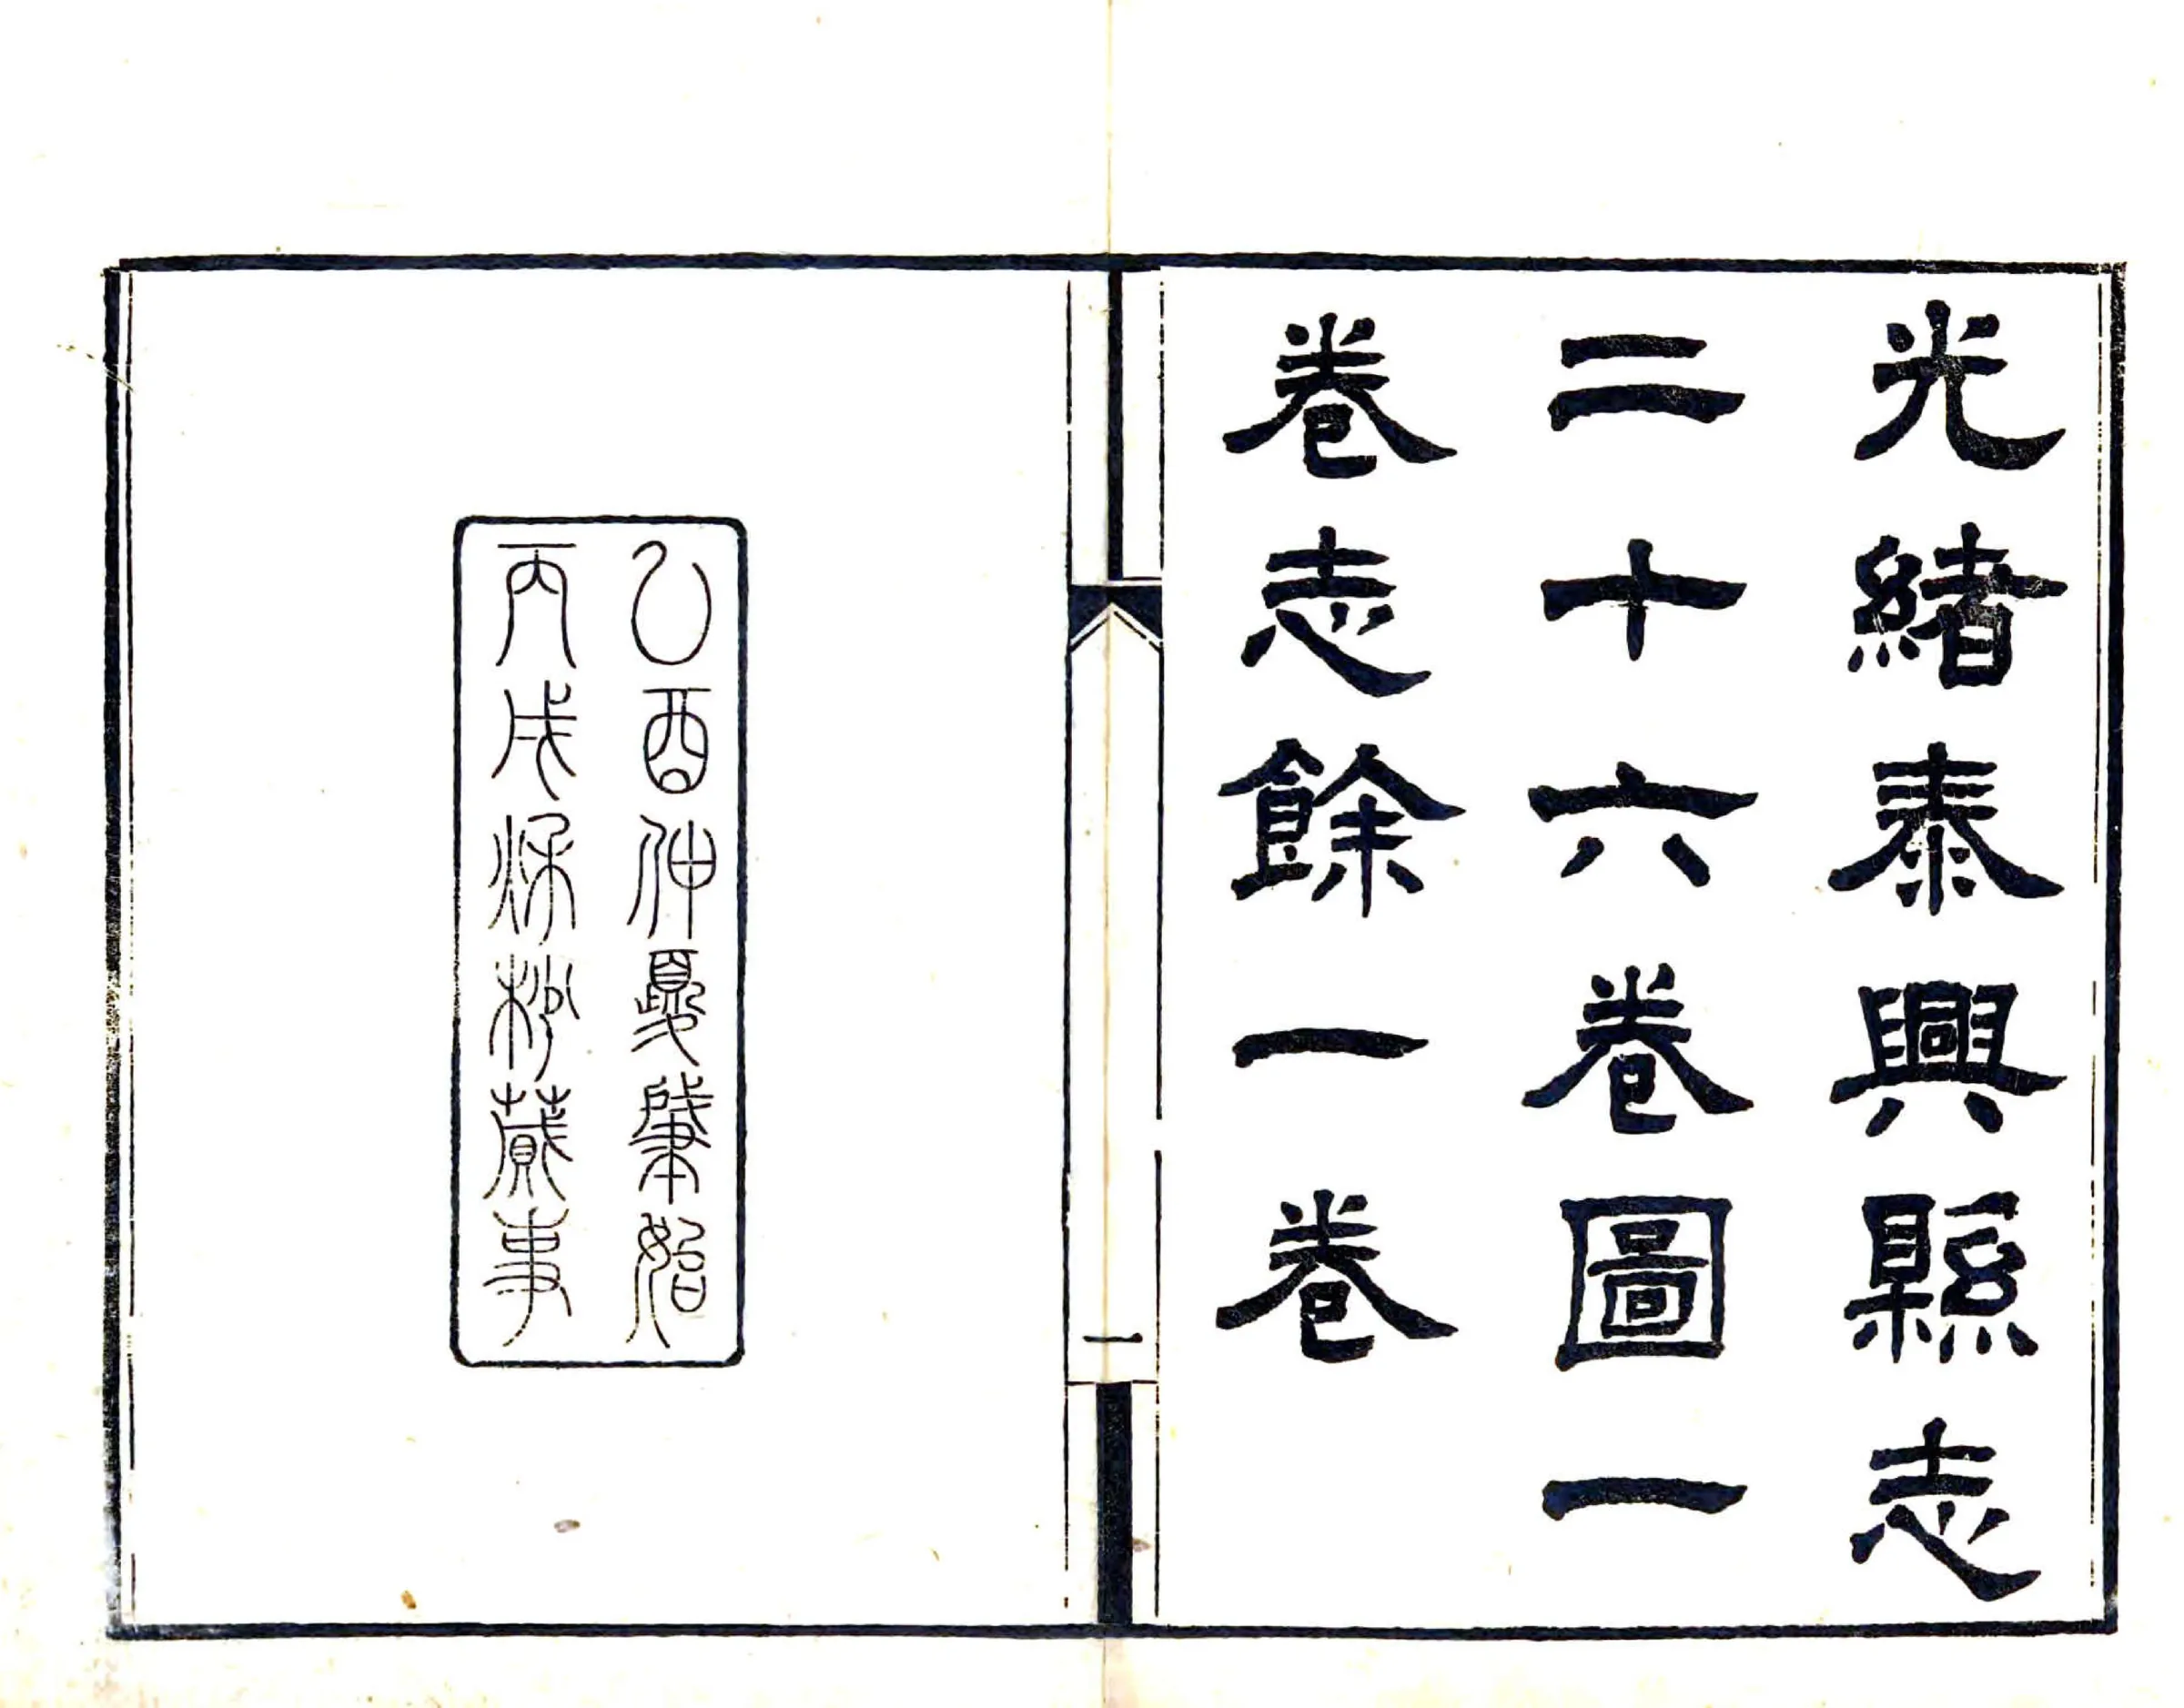 光緒泰興縣志
二十六卷圖一
卷志餘一卷
一
乙酉仲夏肇始
丙戌秌杪蕆事